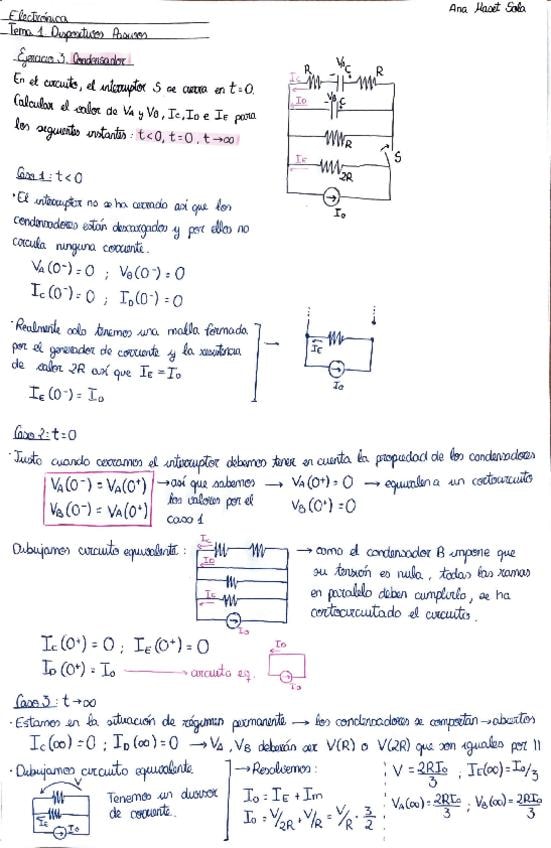 Ana Maset Sola
Electrónica
Tema 1 Dispositivos Pasivos
Ejercicio 3. Condensador
En el circuito, el interruptor S se cierra en t=0.
Calcular el valor de VA y VB, IC, ID e IE para
los siguientes instantes: t<0, t=0, t→∞
IC R VA C R
ID VB C
R
IE 2R S
Io
Caso 1: t<0
· El interruptor no se ha cerrado así que los
condensadores están descargados y por ellos no
circula ninguna corriente.
VA(0⁻)=0 ; VB(0⁻)=0
IC(0⁻)=0 ; ID(0⁻)=0
· Realmente solo tenemos una malla formada
por el generador de corriente y la resistencia
de valor 2R así que IE=Io
IE(0⁻)=Io
IE
Io
Caso 2: t=0
· Justo cuando cerramos el interruptor debemos tener en cuenta la propiedad de los condensadores
VA(0⁻)=VA(0⁺) → así que sabemos → VA(0⁺)=0 → equivalen a un cortocircuito
VB(0⁻)=VA(0⁺) los valores por el VB(0⁺)=0
caso 1
Dibujamos circuito equivalente:
IC
ID
IE
Io
→ como el condensador B impone que
su tensión es nula, todas las ramas
en paralelo deben cumplirlo, se ha
cortocircuitado el circuito.
IC(0⁺)=0 ; IE(0⁺)=0
ID(0⁺)=Io → circuito eq.
ID
Io
Caso 3: t→∞
· Estamos en la situación de régimen permanente → los condensadores se comportan → abiertos
IC(∞)=0 ; ID(∞)=0 → VA, VB deberán ser V(R) o V(2R) que son iguales por ||
· Dibujamos circuito equivalente
IE
Io
Tenemos un divisor
de corriente.
→ Resolvemos:
Io = IE + Im
Io = V/2R + V/R = V/R · 3/2
V = 2RIo/3 ; IE(∞)=Io/3
VA(∞)=2RIo/3 ; VB(∞)=2RIo/3